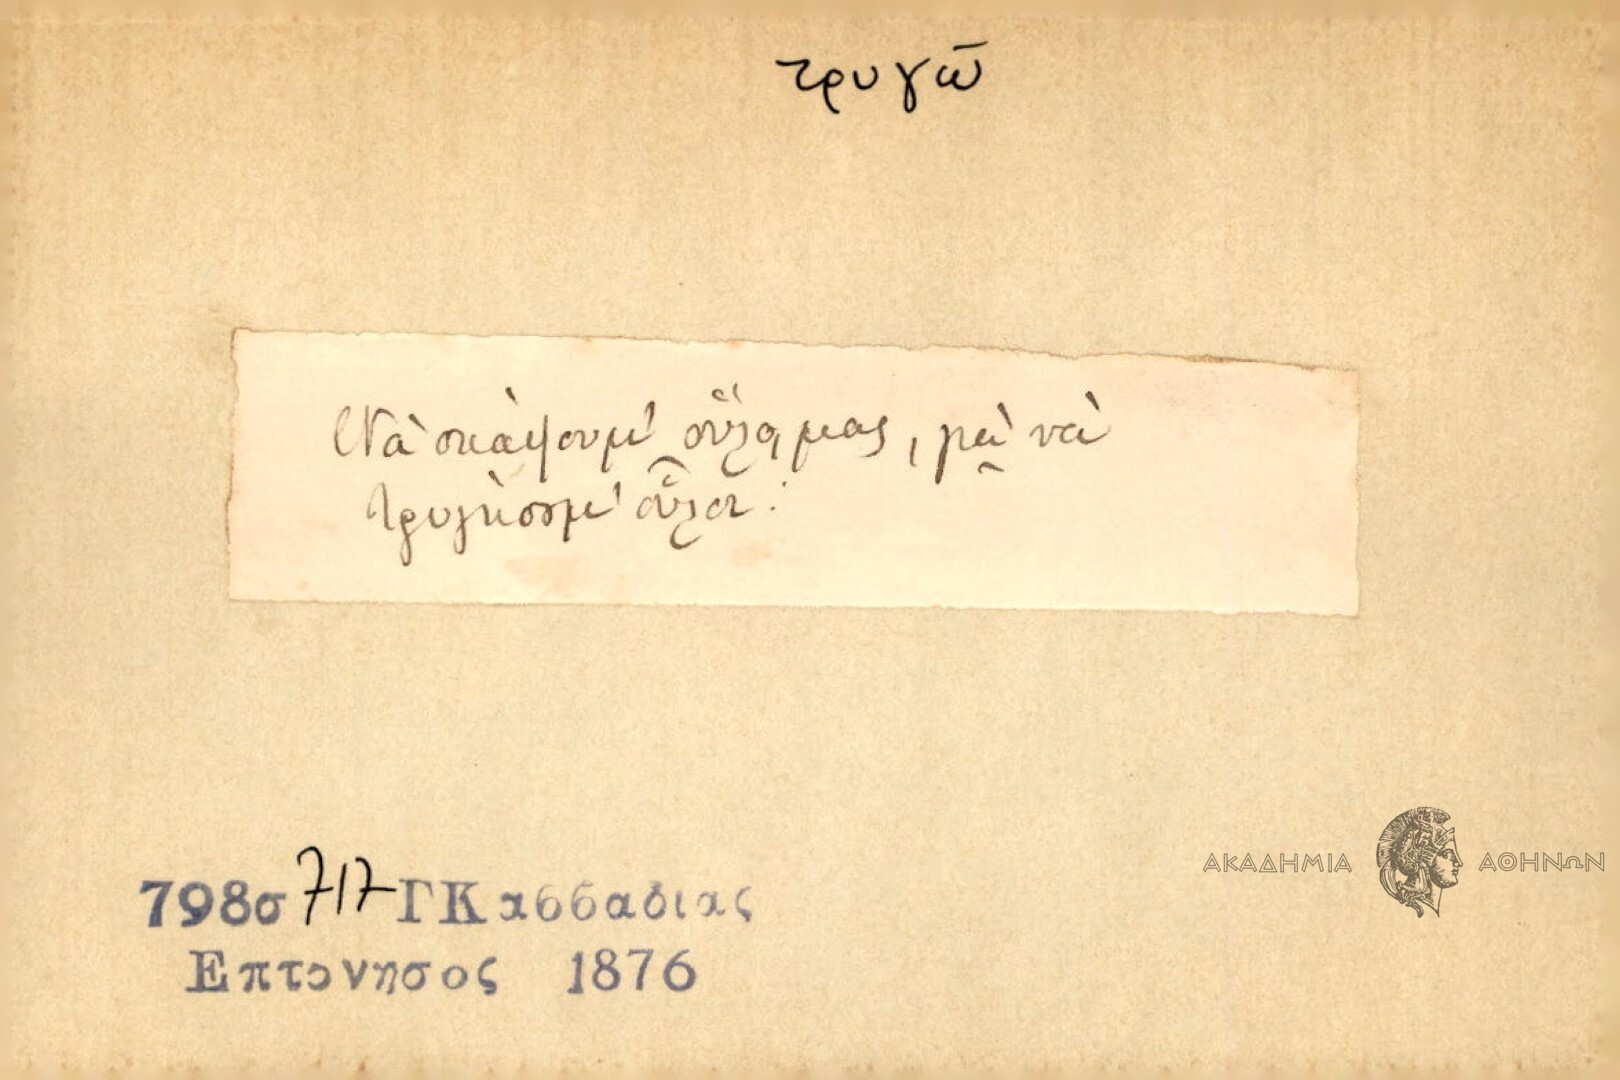 τρυγῶ
Νὰ σκάψουμε οὗλοι μας, μὰ νὰ
τρυγήσομε οὗλοι.
798σ 717 ΓΚασσαδιας
Επτονησος 1876
ΑΚΑΔΗΜΙΑ ΑΘΗΝΩΝ